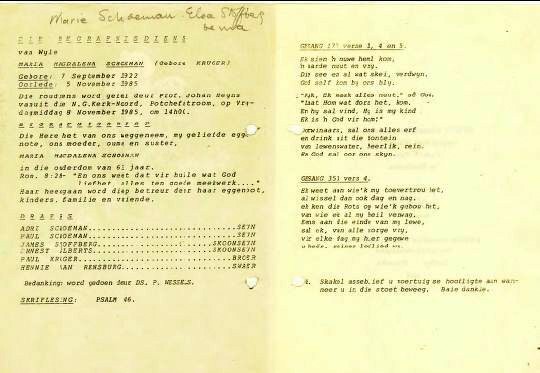 Marie Schoeman - Elsa Stoffberg
D I E  B E G R A F N I S D I E N S
van Wyle
MARIA MAGDALENA SCHOEMAN (Gebore KRUGER)
Gebore: 7 September 1922
Oorlede: 5 November 1985
Die roudiens word gelei deur Prof. Johan Heyns
vanuit die N.G.Kerk-Noord, Potchefstroom, op Vry-
dagmiddag 8 November 1985, om 14h00.
Die Here het van ons weggeneem, my geliefde egge-
note, ons moeder, ouma en suster,
MARIA MAGDALENA SCHOEMAN
in die ouderdom van 61 jaar.
Rom. 8:28- "En ons weet dat vir hulle wat God
liefhet, alles ten goede meewerk...."
Haar heengaan word diep betreur deur haar eggenoot,
kinders, familie en vriende.
D R A E R S
ADRI SCHOEMAN SEUN
PAUL SCHOEMAN SEUN
JAMES STOFFBERG SKOONSEUN
ERNEST ELBERTS SKOONSEUN
PAUL KRUGER BROER
HENNIE VAN RENSBURG SWAER
Bedanking: word gedoen deur DS. P. WESSELS.
SKRIFLESING: PSALM 46.
GESANG verse 1, 4 en 5.
Ek sien 'n nuwe hemel kom,
'n aarde nuut en vry.
Die see en al wat skei, verdwyn,
God self kom by ons bly.
"Kyk, Ek maak alles nuut," sê God,
"Laat hom wat dors het, kom.
En hy sal vind, Hy is my kind
Ek is 'n God vir hom!"
Oorwinnaars, sal ons alles erf
en drink uit die fontein
van lewenswater, heerlik, rein.
En God sal oor ons skyn.
GESANG 351 vers 4.
Ek weet aan wie'k my toevertrou het,
al wissel dan ook dag en nag.
ek ken die Rots op wie'k gebou het,
van wie ek al my heil verwag.
Eens aan die einde van my lewe,
sal ek, van alle sorge vry,
vir elke dag my hier gegewe
Skakel asseblief u voertuig se hoofligte aan wan-
neer u in die stoet beweeg. Baie dankie.